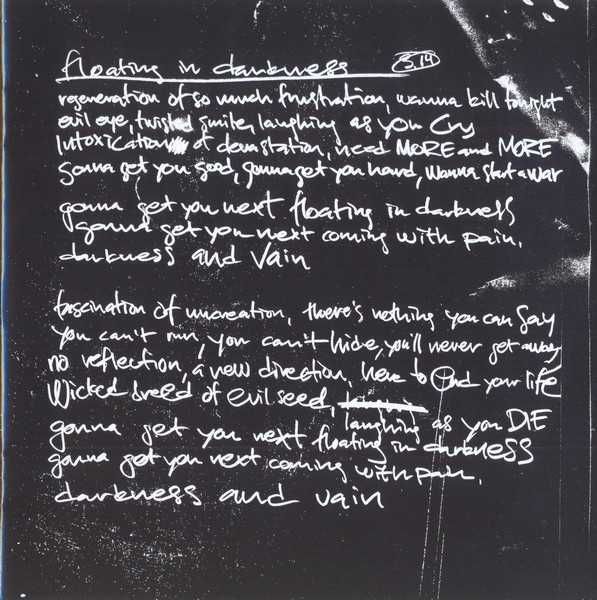 floating in darkness 3.14
regeneration of so much frustration, wanna kill tonight
evil eye, twisted smile, laughing as you Cry
Intoxication of devastation, need MORE and MORE
gonna get you good, gonna get you hard, wanna start a war
gonna get you next floating in darkness
gonna get you next coming with pain,
darkness and vain
fascination of uncreation, there's nothing you can say
you can't run, you can't hide, you'll never get away
no reflection, a new direction, here to end your life
Wicked breed of evil seed,
laughing as you DIE
gonna get you next floating in darkness
gonna get you next coming with pain,
darkness and vain